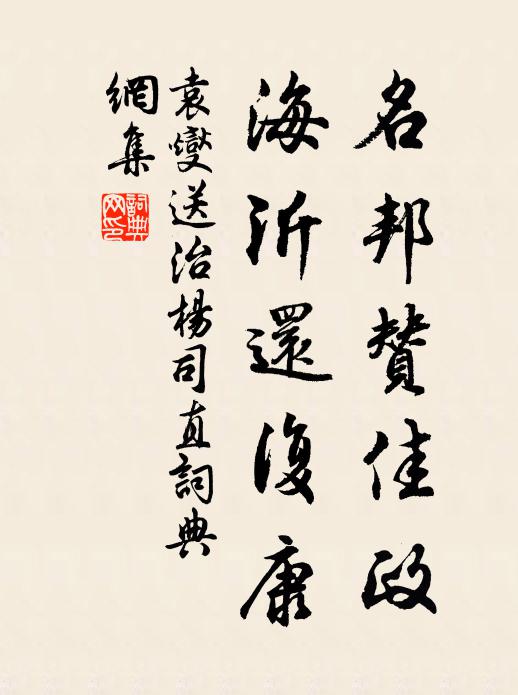 名邦赞佳政
海沂還復康
袁燮送治楊司直詞典
網集
詞典网印